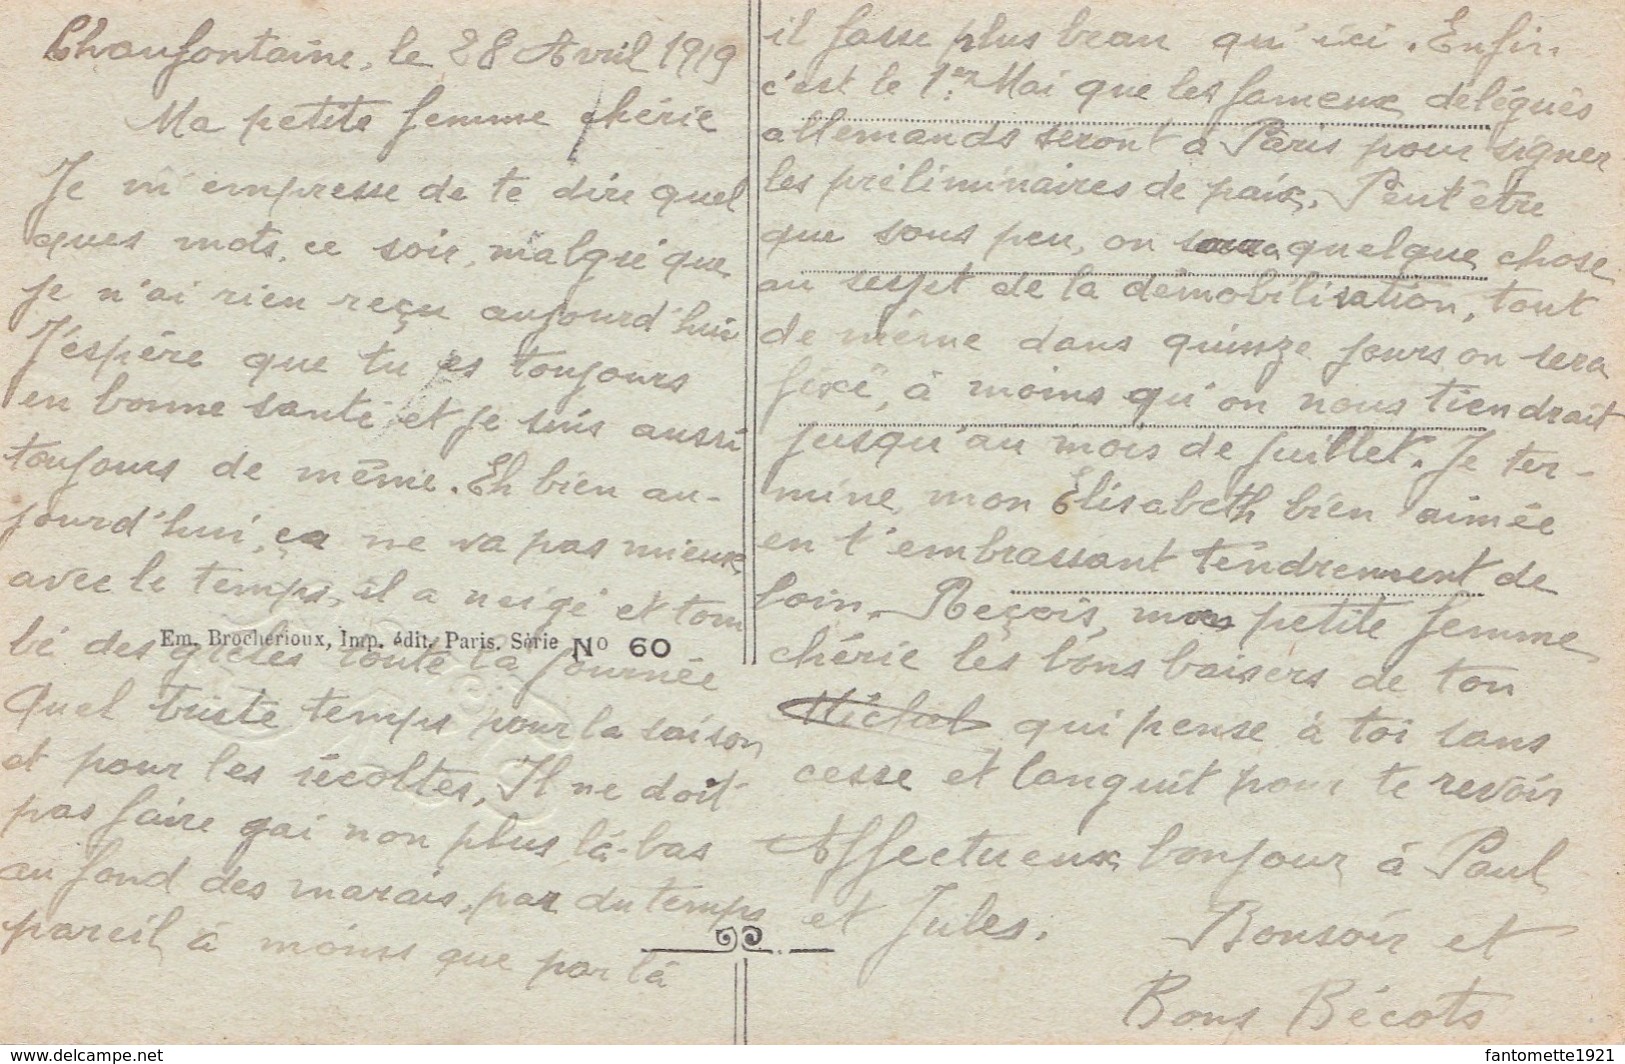 Chaufontaine, le 28 Avril 1919
Ma petite femme chérie
Je m'empresse de te dire quel
ques mots, ce soir, malgré que
je n'ai rien reçu aujourd'hui
J'espére que tu es toujours
en bonne santé et je suis aussi
toujours de même. Eh bien au-
jourd'hui, ça ne va pas mieux
avec le temps, il a neigé et tom
bé des grêles toute la journée
Quel triste temps pour la saison
et pour les récoltes. Il ne doit
pas faire gai non plus là-bas
au fond des marais, par du temps
pareil à moins que par là
Em. Brocherioux, Imp. édit. Paris. Série No 60
il fasse plus beau qu'ici. Enfin
c'est le 1er Mai que les fameux délégués
allemands seront à Paris pour signer
les préliminaires de paix. Peut être
que sous peu, on saura quelque chose
au sujet de la démobilisation, tout
de même dans quinze jours on sera
fixé, à moins qu'on nous tiendrait
jusqu'au mois de juillet. Je ter-
mine, mon Elisabeth bien aimée
en t'embrassant tendrement de
loin. Reçois, ma petite femme
chérie les bons baisers de ton
Michel qui pense à toi sans
cesse et languit pour te revoir
Affectueux bonjour à Paul
et Jules. Bonsoir et
Bons Bécots
www.delcampe.net
fantomette1921